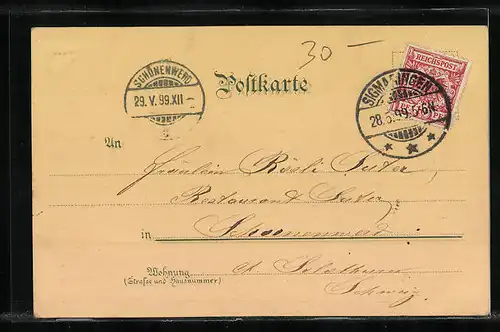 30 –
SCHÖNENWERD
29. V. 99. XII –
Postkarte
REICHSPOST
SIGMARINGEN
28.5.99. 5-6N.
An
Fräulein Rösli Suter,
Restaurant Suter,
in Schoenenwerd
Wohnung
(Strasse und Hausnummer)
Ct. Solothurn
Schweiz